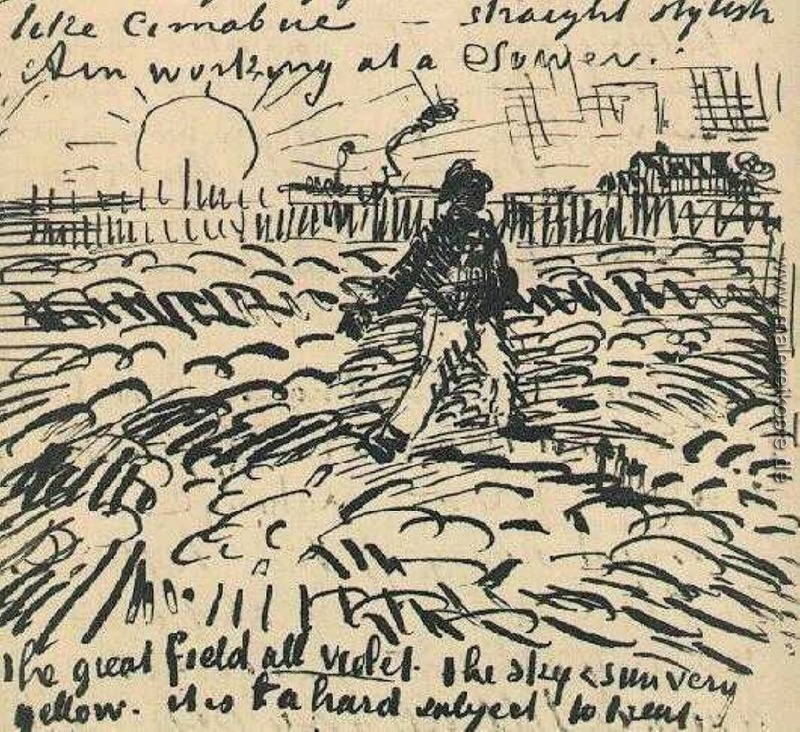 like Cimabue — straight stylish
Am working at a Sower.
the great field all violet. the sky & sun very
yellow. it is a hard subject to treat.